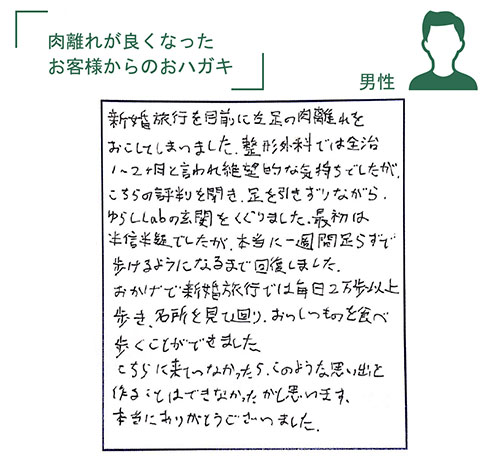 肉離れが良くなった
お客様からのおハガキ
男性
新婚旅行を目前に左足の肉離れを
おこしてしまいました。整形外科では全治
1~2ヶ月と言われ絶望的な気持ちでしたが、
こちらの評判を聞き、足を引きずりながら、
ゆらしLabの玄関をくぐりました。最初は
半信半疑でしたが、本当に一週間足らずで
歩けるようになるまで回復しました。
おかげで新婚旅行では毎日2万歩以上
歩き、名所を見て回り、おいしいものを食べ
歩くことができました。
こちらに来ていなかったら、このような思い出を
作ることはできなかったかと思います。
本当にありがとうございました。